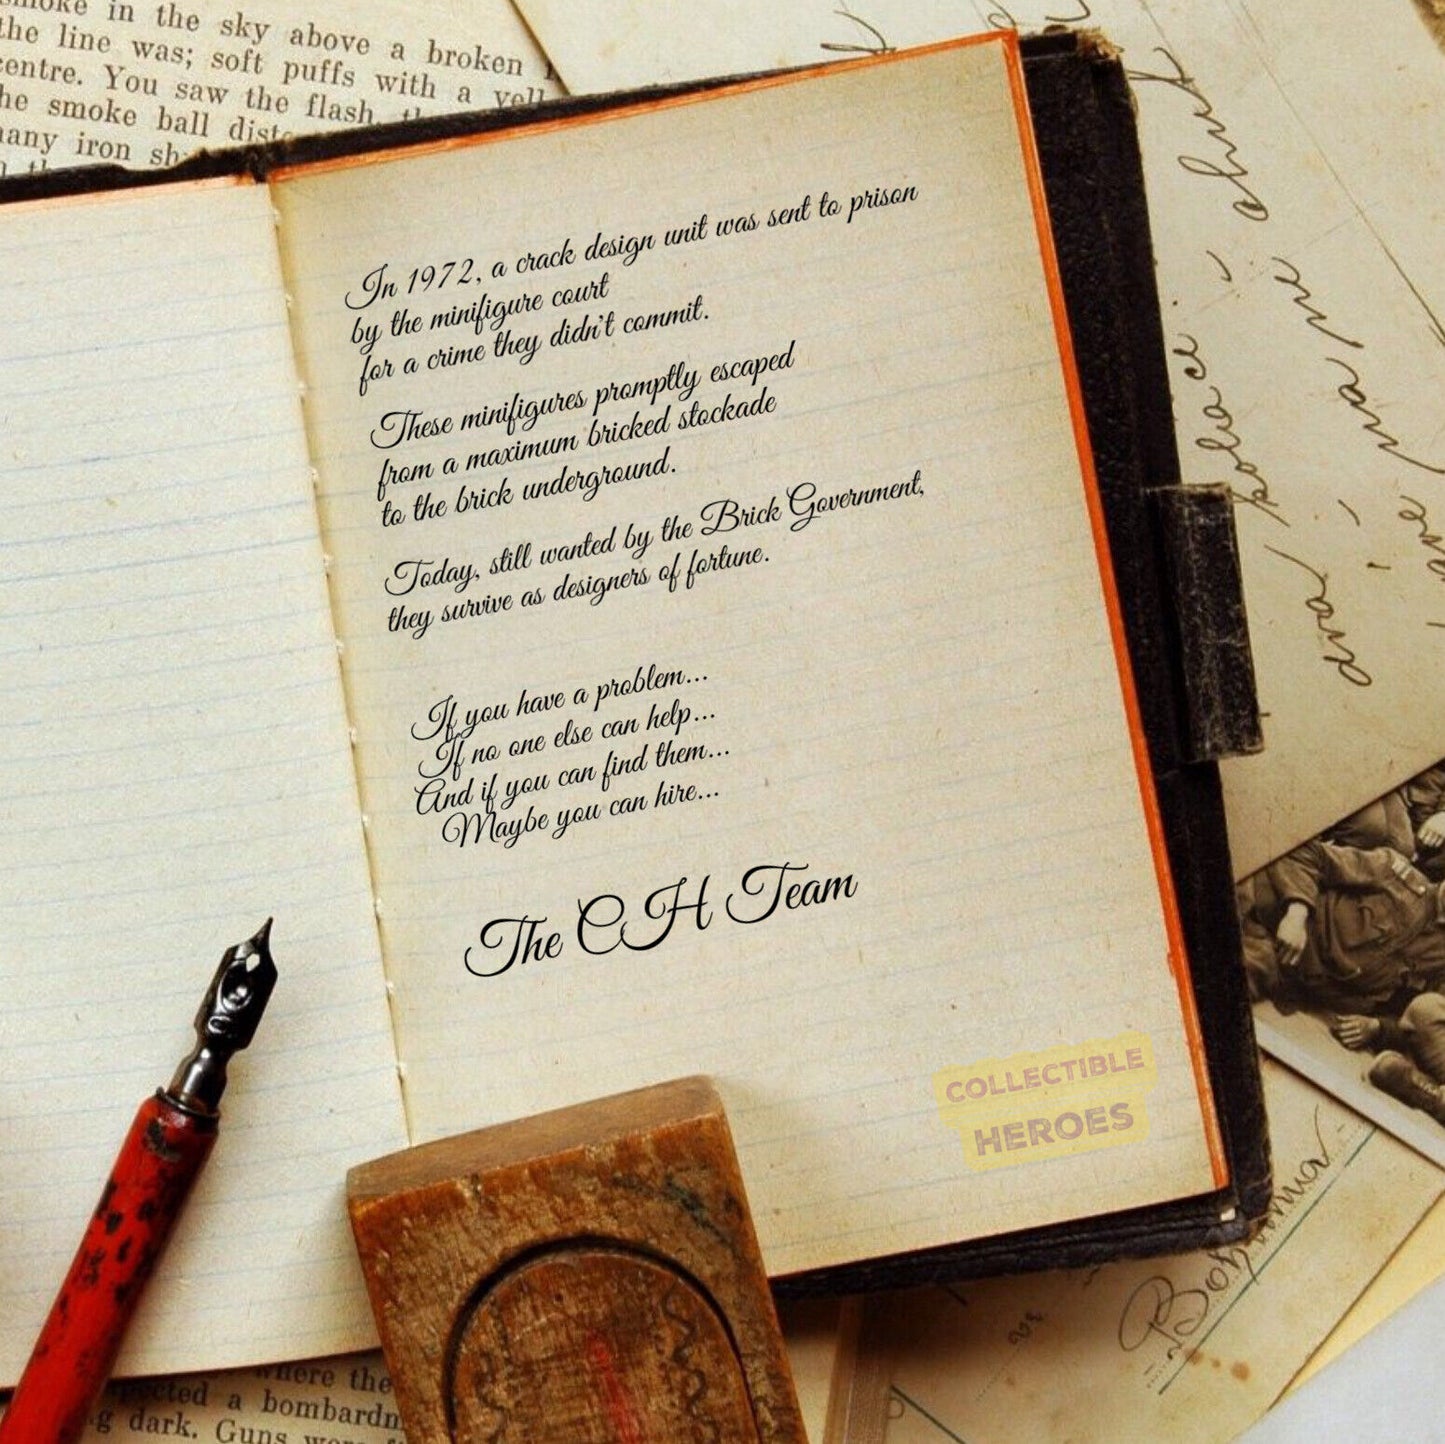 smoke in the sky above a broken
the line was; soft puffs with a yell
centre. You saw the flash,
he smoke ball dist
many iron sh
In 1972, a crack design unit was sent to prison
by the minifigure court
for a crime they didn't commit.
These minifigures promptly escaped
from a maximum bricked stockade
to the brick underground.
Today, still wanted by the Brick Government,
they survive as designers of fortune.
If you have a problem...
If no one else can help...
And if you can find them...
Maybe you can hire...
The CH Team
COLLECTIBLE
HEROES
where the
pected a bombardm
g dark. Guns were